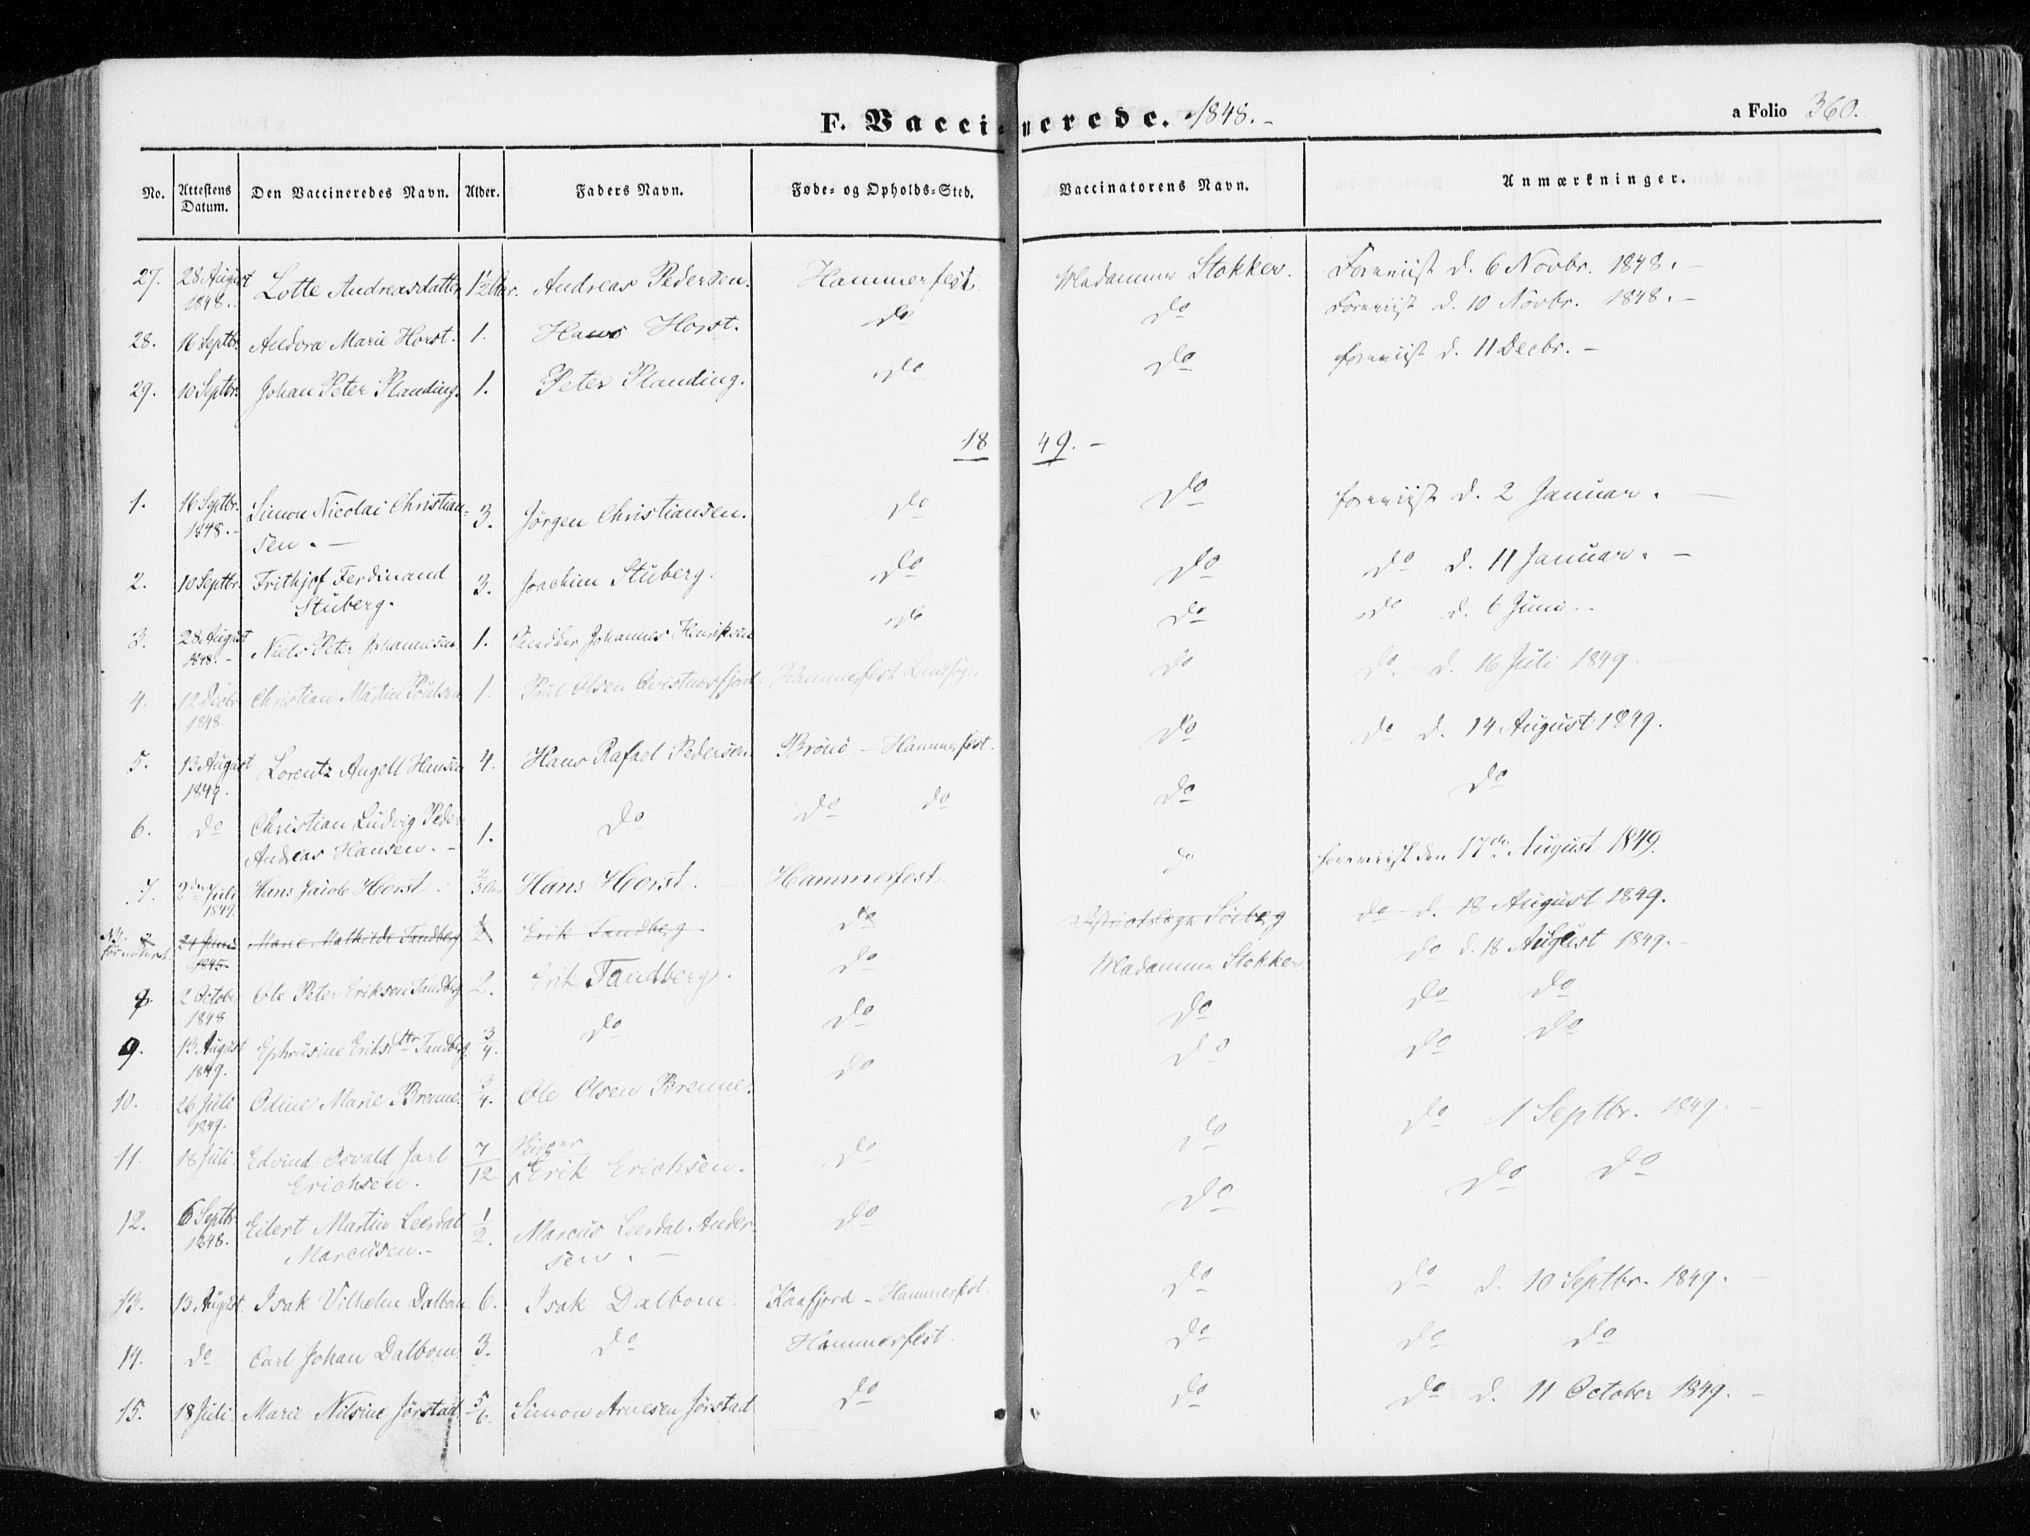 F. Vaccinerede. 1848.-
a Folio 360.
No. Attestens Datum. Den Vaccineredes Navn. Alder. Faders Navn. Føde- og Opholds-Sted. Vaccinatorens Navn. Anmærkninger.
27. 28 August 1848.- Lotte Andreasdatter 1½ Aar. Andreas Pedersen. Hammerfest. Madamme Stokker. Foreviist d. 6 Novbr. 1848.-
28. 16 Septbr. Andora Marie Horst. 1. Hans Horst. do do Foreviist d. 10 Novbr. 1848.-
29. 10 Septbr. Johan Peter Planding. 1. Peter Planding. do do foreviist d. 11 Decbr.-
1849.-
1. 16 Septbr. 1848.- Simon Nicolai Christian-
sen.- 3. Jørgen Christiansen. do do foreviist d. 2 Januar.
2. 10 Septbr. Frithjof Ferdinand
Stuberg. 3. Joachim Stuberg. do do do d. 11 Januar.-
3. 28 August 1848.- Niels Peter Johannesen 1. Johannes Henriksen do do do d. 6 Juni.-
4. 12 Decbr 1848. Christian Martin Poulsen 1. Poul Olsen Hammerfest Landsogn do do d. 16 Juli 1849.
5. 13 August 1849. Lorentz Angell Hansen 4. Hans Rafael Pedersen. Brönö - Hammerfest. do do d. 14 August 1849.
6. do Christian Ludvig Peder
Andreas Hansen.- 1. do do do do do
7. 2den Juli 1849. Hans Jacob Horst. ⅔ Hans Horst. Hammerfest. do foreviist den 17de August 1849.
21 Juni 1845. Marie Mathilde Tandberg 2 Erik Tandberg. do Söeberg do d. 18 August 1849.
8. 2 October 1848 Ole Peter Eriksen Tandberg 2. Erik Tandberg. do Madamme Stokker do d. 18 August 1849.-
9. 13. August 1849. Ephrusine Eriksdtr Tandberg ¾. do do do do do
10. 26 Juli 1849. Odine Marie Brenne. ¾. Ole Olsen Brenne. do do do do
11. 18 Juli. Edvind Osvald Jarl
Erichsen. 7/12. Erik Erichsen. do do do 1 Septbr. 1849.
12. 6 Septbr. 1848. Eilert Martin Leerdal
Marcusen.- ½. Marcus Leerdal Ander-
sen. do do do do
13. 13 August. Isak Vilhelm Dalbom 6. Isak Dalbom. Kaafjord - Hammerfest. do do d. 10 Septbr. 1849.
14. do Carl Johan Dalbom 3. do Hammerfest. do do do
15. 18 Juli Marie Nilsine Jörstad 5/6. Simon Arnesen Jörstad do do do d. 11 October 1849.-